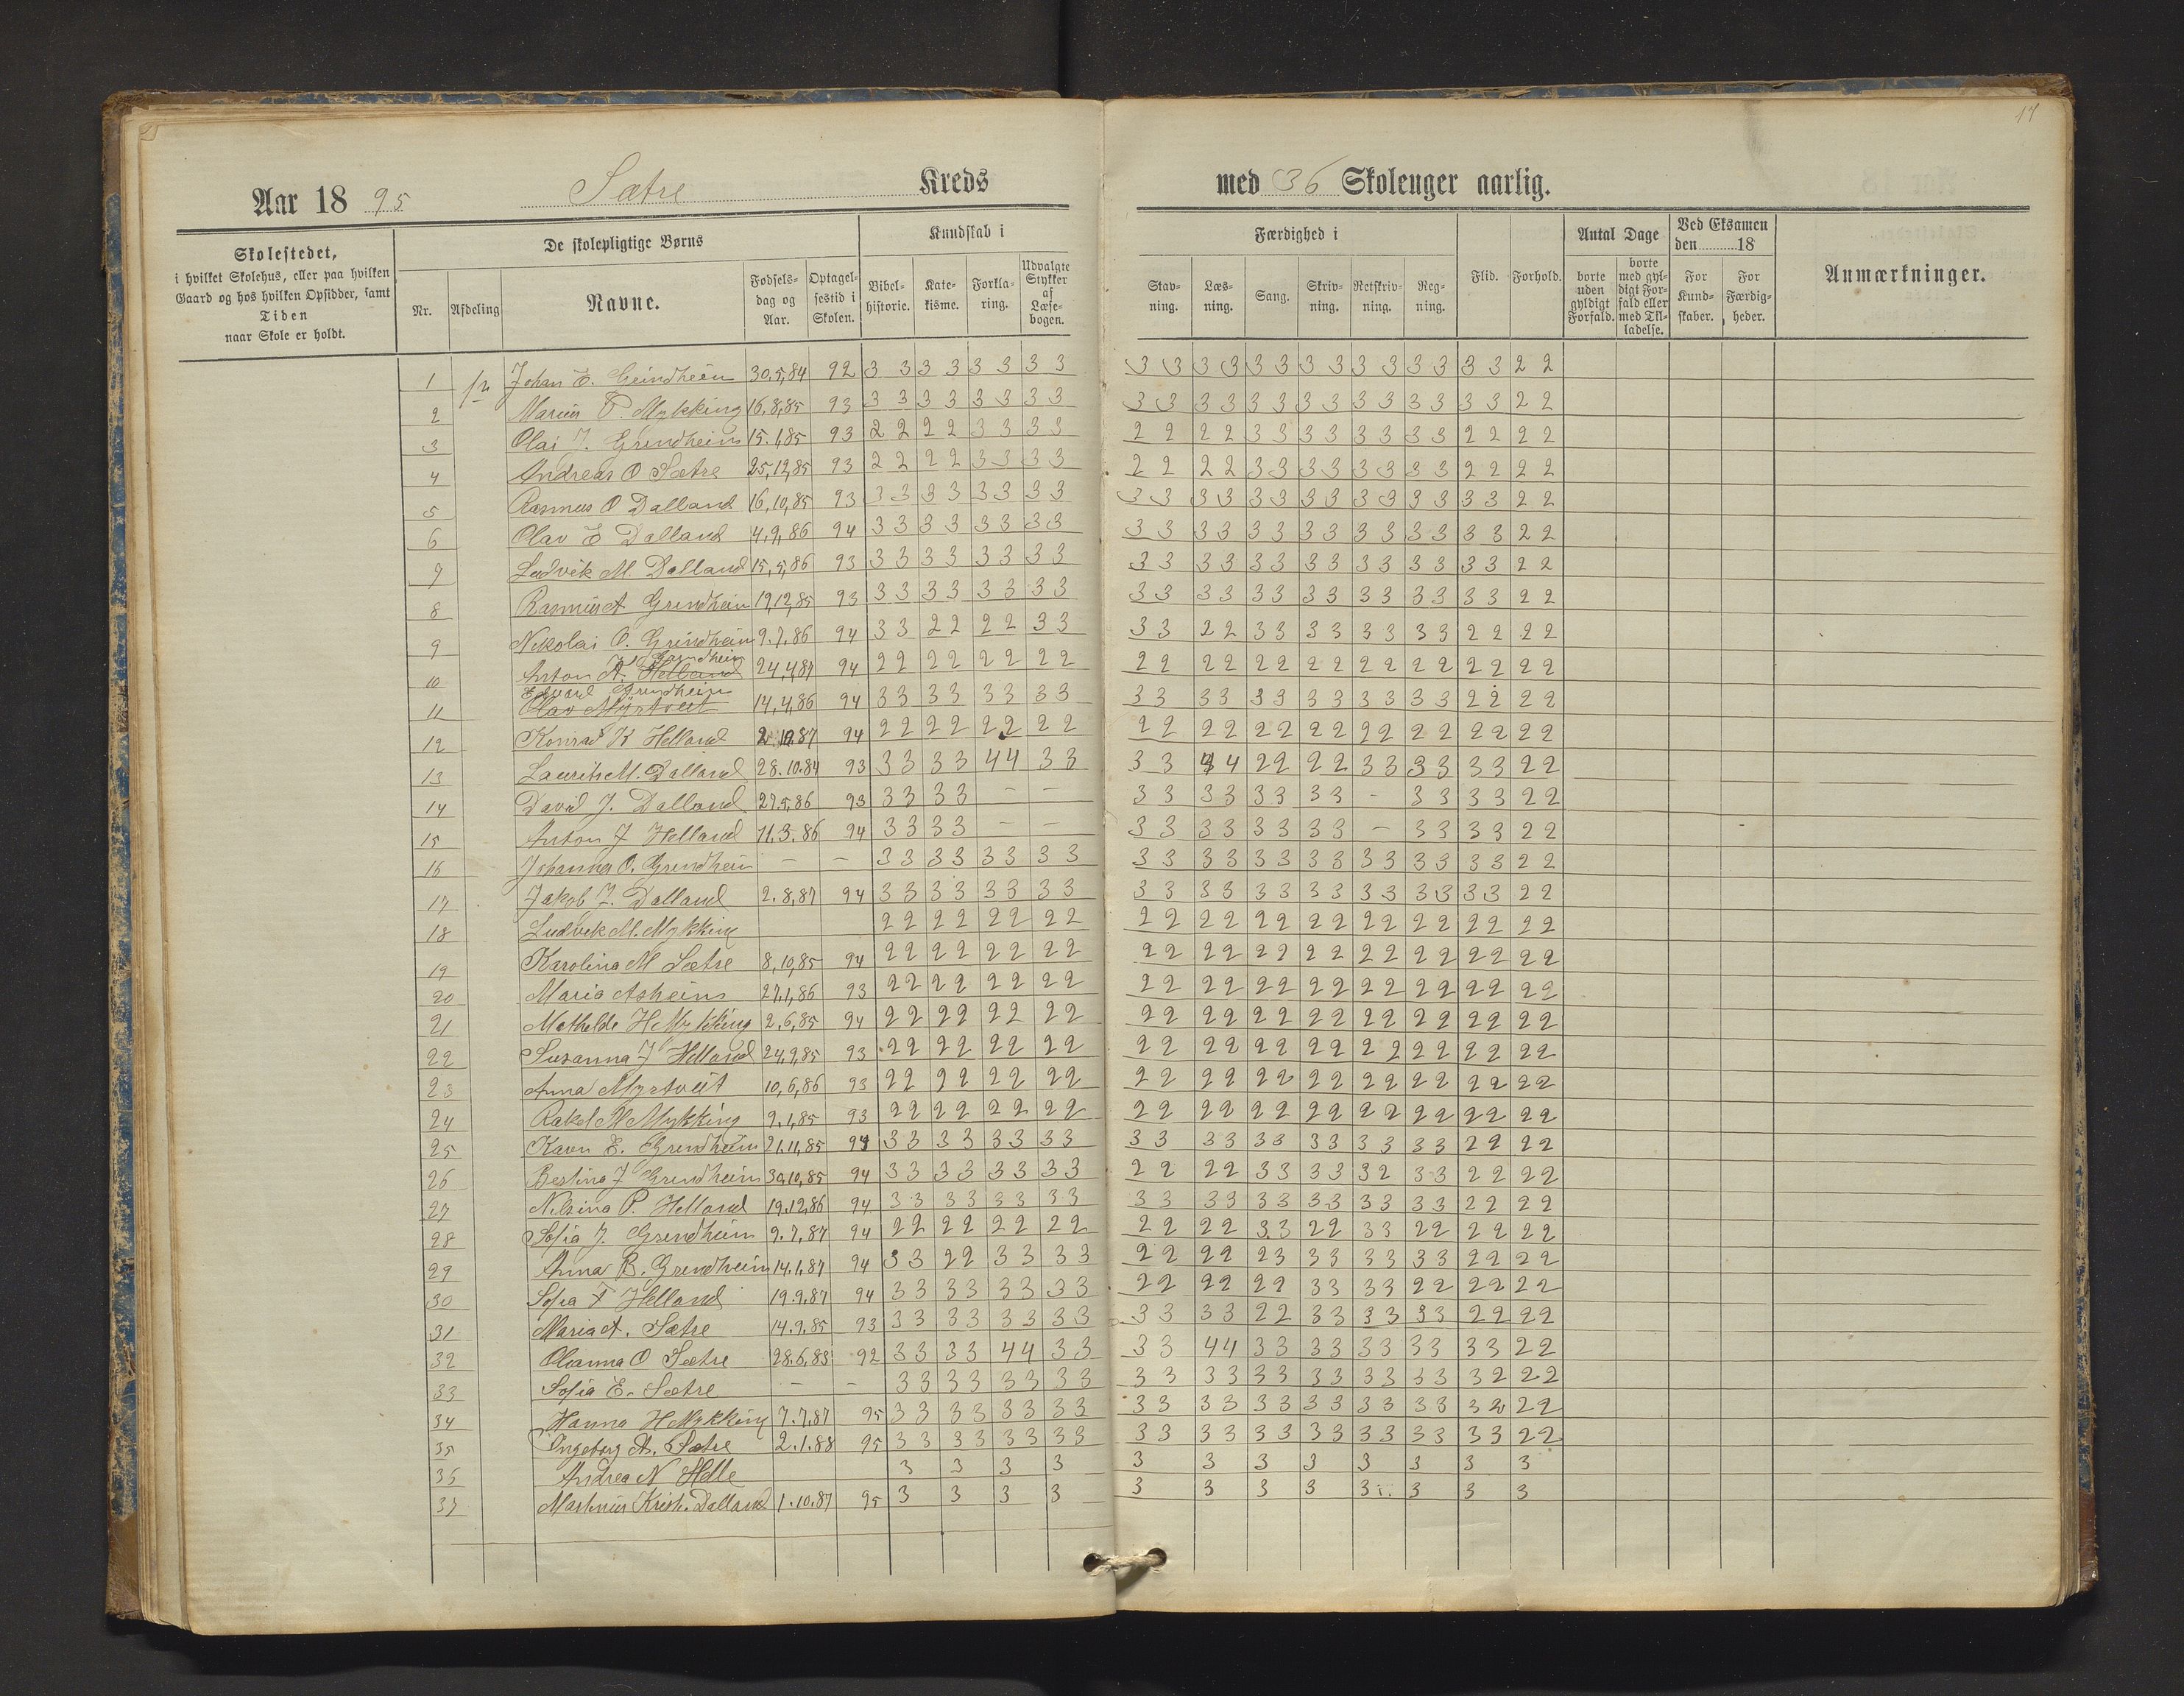 17
Aar 1895 Sætre Kreds med 36 Skoleuger aarlig.
Skolestedet, i hvilket Skolehus, eller paa hvilken Gaard og hos hvilken Opsidder, samt Tiden naar Skole er holdt.
De skolepligtige Børns
Nr. Afdeling Navne. Fødselsdag og Aar. Optagelsestid i Skolen.
Kundskab i
Bibelhistorie. Katekisme. Forklaring. Udvalgte Stykker af Læsebogen.
Færdighed i
Stavning. Læsning. Sang. Skrivning. Retskrivning. Regning.
Flid. Forhold.
Antal Dage
borte uden gyldigt Forfald. borte med gyldigt Forfald eller med Tilladelse.
Ved Eksamen den 18
For Kundskaber. For Færdigheder.
Anmærkninger.
1 Johan E. Grindheim 30.5,84 92 3 3 3 3 3 3 3 3 3 3 3 3 3 3 3 3 3 3 3 3 3 3 2 2
2 Marius P. Mykking 16,8,85 93 3 3 3 3 3 3 3 3 3 3 3 3 3 3 3 3 3 3 3 3 3 3 2 2
3 Olai J. Grindheim 15.1,85 93 2 2 2 2 3 3 3 3 2 2 2 2 3 3 3 3 3 3 3 3 2 2 2 2
4 Andreas O Sætre 25,12,85 93 2 2 2 2 3 3 3 3 2 2 2 2 3 3 3 3 3 3 3 3 2 2 2 2
5 Rasmus O Dalland 16,10,85 93 3 3 3 3 3 3 3 3 3 3 3 3 3 3 3 3 3 3 3 3 3 3 2 2
6 Olav E Dalland 4,9,86 94 3 3 3 3 3 3 3 3 3 3 3 3 3 3 3 3 3 3 3 3 3 3 2 2
7 Ludvik M. Dalland 15,5,86 93 3 3 3 3 3 3 3 3 3 3 3 3 3 3 3 3 3 3 3 3 3 3 2 2
8 Rasmus A Grindheim 19,12,85 93 3 3 3 3 3 3 3 3 3 3 3 3 3 3 3 3 3 3 3 3 3 3 2 2
9 Nikolai O. Grindheim 9.7.86 94 3 3 2 2 2 2 3 3 3 3 2 2 3 3 3 3 3 3 3 3 2 2 2 2
Grindheim
10 Anton A. Helland 24,4,87 94 2 2 2 2 2 2 2 2 2 2 2 2 2 2 2 2 2 2 2 2 2 2 2 2
Edvard Grindheim
11 Olav Myrtveit 14,4,86 94 3 3 3 3 3 3 3 3 3 3 3 3 3 3 3 3 3 3 3 3 2 2 2 2
12 Konrad K Helland 94 2 2 2 2 2 2 2 2 2 2 2 2 2 2 2 2 2 2 2 2 2 2 2 2
13 Laurits M. Dalland 28.10.84 93 3 3 3 3 4 4 3 3 3 3 4 4 2 2 2 2 3 3 3 3 3 3 2 2
14 David J. Dalland 27.5,86 93 3 3 3 3 – – 3 3 3 3 3 3 3 3 – 3 3 3 3 2 2
15 Anton J Helland 11.3.86 94 3 3 3 3 – – 3 3 3 3 3 3 3 3 – 3 3 3 3 2 2
16 Johanna O. Grindheim – – 3 3 3 3 3 3 3 3 3 3 3 3 3 3 3 3 3 3 3 3 3 3 2 2
17 Jakob J. Dalland 2.8,87 94 3 3 3 3 3 3 3 3 3 3 3 3 3 3 3 3 3 3 3 3 3 3 2 2
18 Ludvik M. Mykking 2 2 2 2 2 2 2 2 2 2 2 2 2 2 2 2 2 2 2 2 2 2 2 2
19 Karolina M Sætre 8,10,85 94 2 2 2 2 2 2 2 2 2 2 2 2 2 2 2 2 2 2 2 2 2 2 2 2
20 Maria Asheim 27,1,86 93 2 2 2 2 2 2 2 2 2 2 2 2 2 2 2 2 2 2 2 2 2 2 2 2
21 Mathilde H Mykking 2.6,85 94 2 2 2 2 2 2 2 2 2 2 2 2 2 2 2 2 2 2 2 2 2 2 2 2
22 Susanna J Helland 24,9,85 93 2 2 2 2 2 2 2 2 2 2 2 2 2 2 2 2 2 2 2 2 2 2 2 2
23 Anna Myrtveit 10,6,86 93 2 2 2 2 2 2 2 2 2 2 2 2 2 2 2 2 2 2 2 2 2 2 2 2
24 Rakel M Mykking 9.1,85 93 2 2 2 2 2 2 2 2 2 2 2 2 2 2 2 2 2 2 2 2 2 2 2 2
25 Karen E. Grindheim 21,11,85 3 3 3 3 3 3 3 3 3 3 3 3 3 3 3 3 3 3 3 3 2 2 2 2
26 Bertina J Grindheim 30,10,85 94 3 3 3 3 3 3 3 3 2 2 2 2 3 3 3 3 3 2 3 3 2 2 2 2
27 Nilsina P. Helland 19.12,86 94 3 3 3 3 3 3 3 3 3 3 3 3 3 3 3 3 3 3 3 3 2 2 2 2
28 Sofia J. Grindheim 9.7,87 94 2 2 2 2 2 2 2 2 2 2 2 2 3 3 2 2 3 3 2 2 2 2 2 2
29 Anna B. Grindheim 14.1.87 94 3 3 2 2 3 3 3 3 2 2 2 2 2 3 3 3 3 3 3 3 2 2 2 2
30 Sofia T Helland 19.9,87 94 3 3 3 3 3 3 3 3 2 2 2 2 2 2 3 3 3 3 2 2 2 2 2 2
31 Maria A. Sætre 14.9.85 93 3 3 3 3 3 3 3 3 3 3 3 3 2 2 3 3 3 3 3 3 2 2 2 2
32 Oleanna O Sætre 28.6.83 92 3 3 3 3 4 4 3 3 3 3 4 4 3 3 3 3 3 3 3 3 3 3 2 2
33 Sofia E. Sætre – – 3 3 3 3 3 3 3 3 3 3 3 3 3 3 3 3 3 3 3 3 3 2 2 2
34 Hanna H Mykking 7.7.87 95 3 3 3 3 3 3 3 3 3 3 3 3 3 3 3 3 3 3 3 3 3 2 2 2
35 Ingeborg A. Sætre 2.1.88 95 3 3 3 3 3 3 3 3 3 3 3 3 3 3 3 3 3 3 3 3 3 3 2 2
36 Andrea N Helle 3 3 3 3 3 3 3 3 3 3 3 3
37 Martinus Krist. Dalland 1.10.87 95 3 3 3 3 3 3 3 3 3 3 3 3